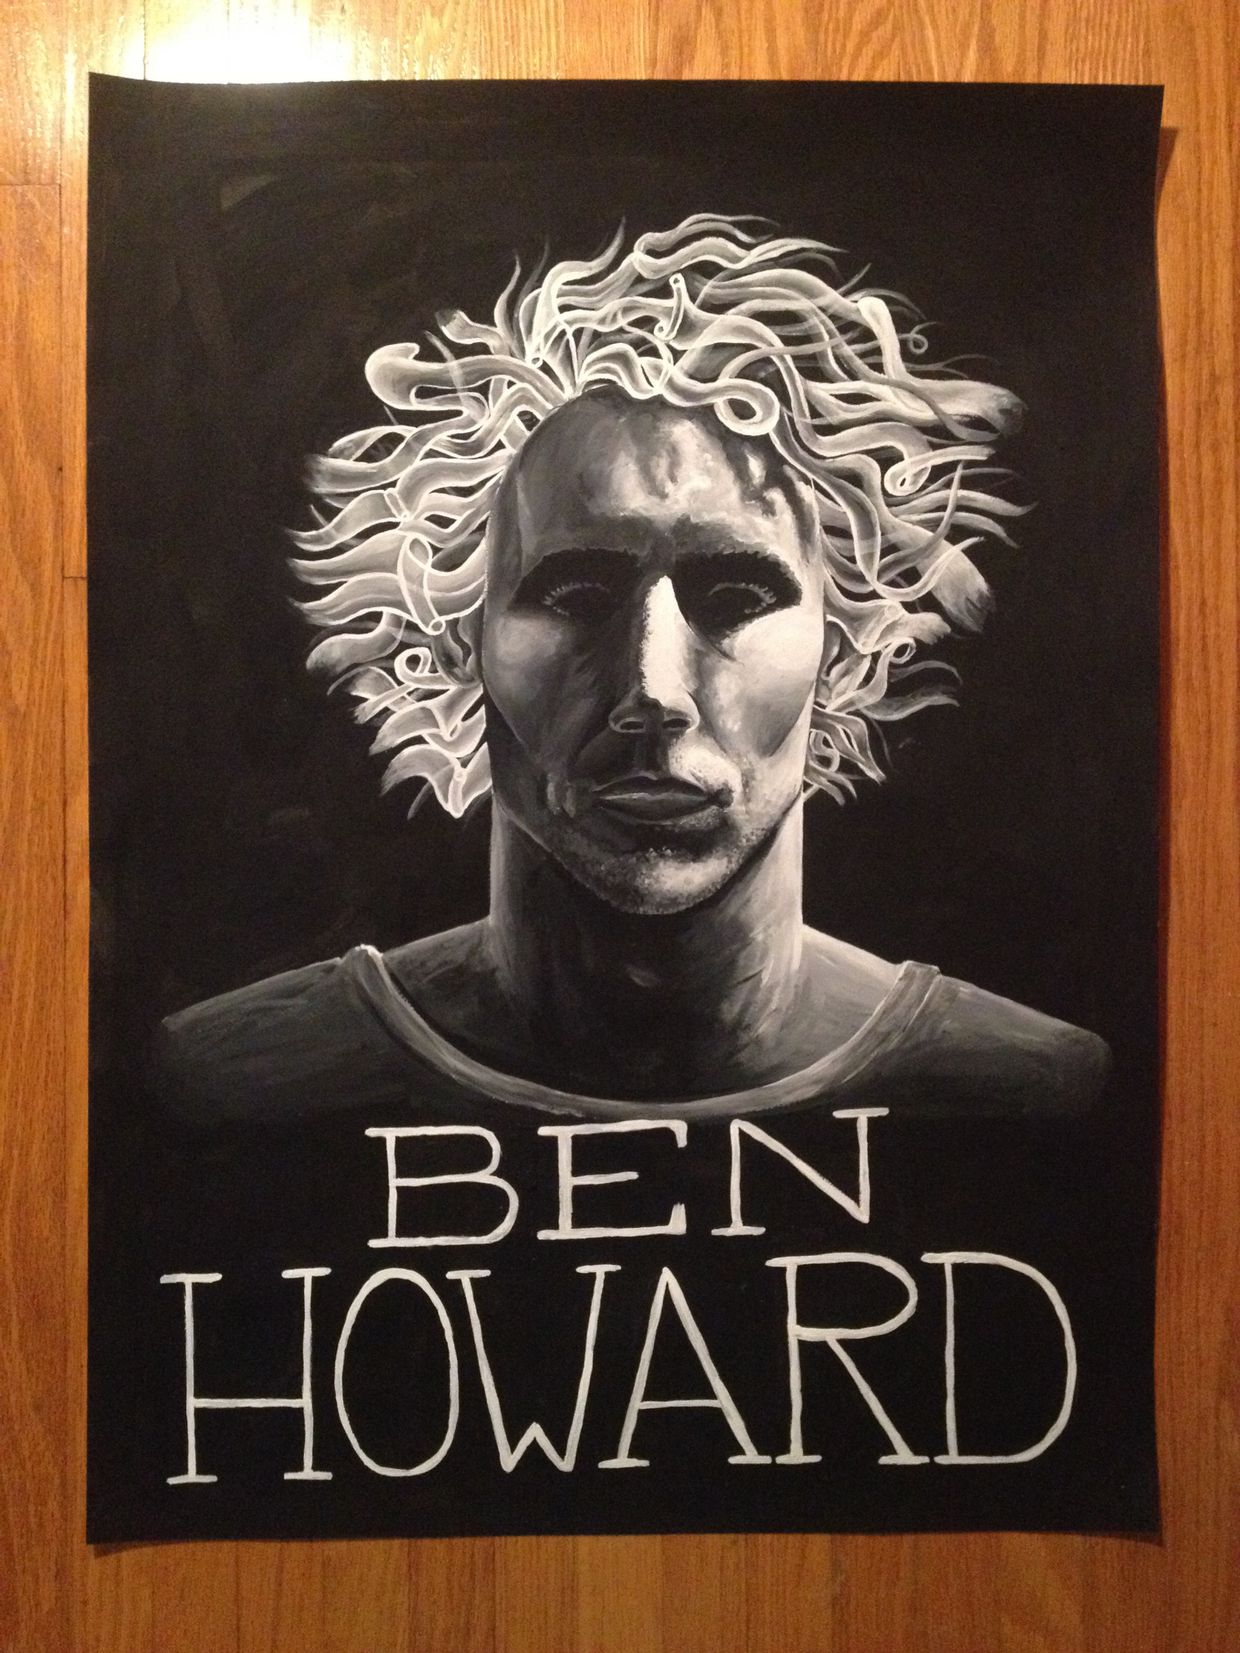 BEN
HOWARD